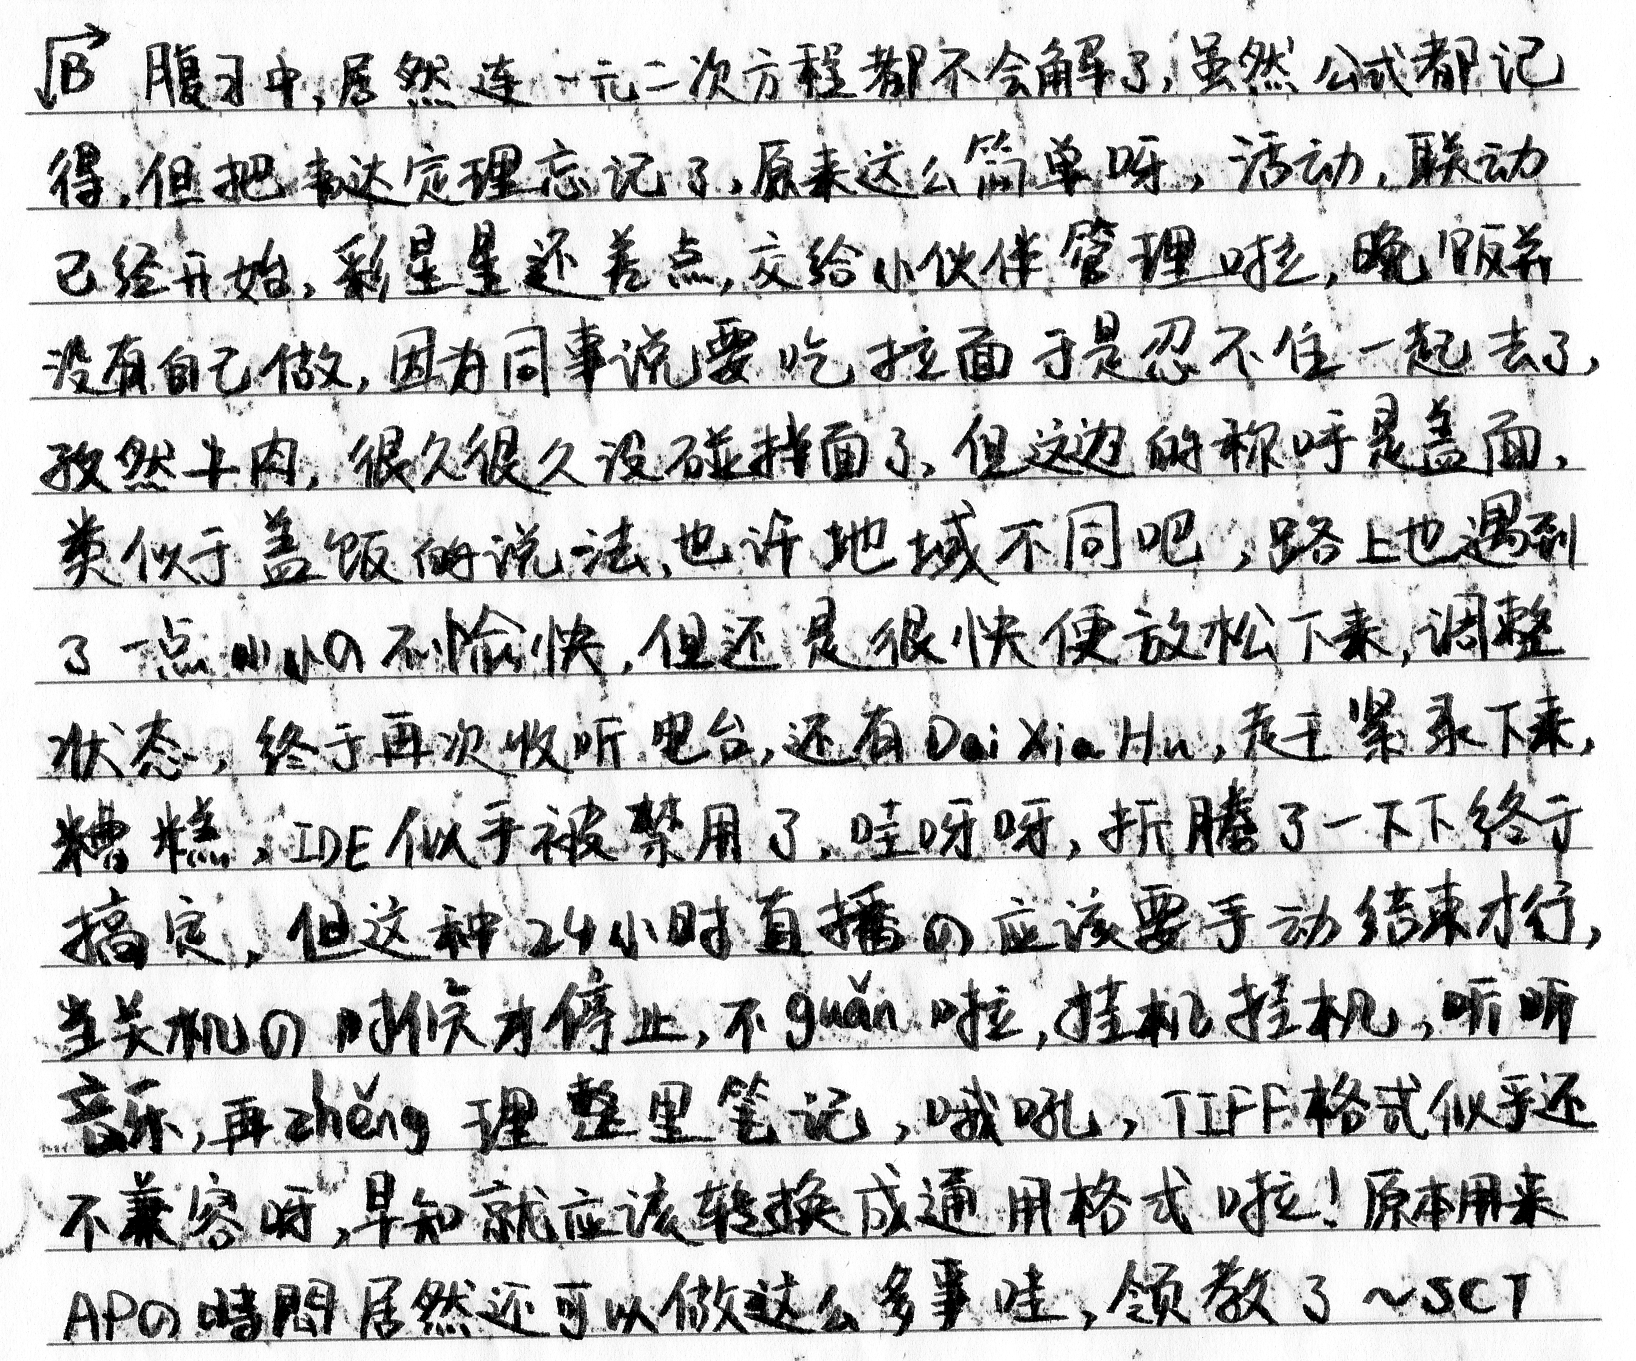 B 腹习中,居然连一元二次方程都不会解了,虽然公式都记
得,但把韦达定理忘记了,原来这么简单呀,活动,联动
已经开始,彩星星还差点,交给小伙伴管理啦,晚饭并
没有自己做,因为同事说要吃拉面于是忍不住一起去了,
孜然牛肉,很久很久没碰拌面了,但这边的称呼是盖面,
类似于盖饭的说法,也许地域不同吧,路上也遇到
了一点小小の不愉快,但还是很快便放松下来,调整
状态,终于再次收听电台,还有DaiXiaHu,赶紧录下来,
糟糕,IDE似乎被禁用了,哇呀呀,折腾了一下下终于
搞定,但这种24小时直播の应该要手动结束才行,
当关机の时候才停止,不guǎn啦,挂机挂机,听听
音乐,再zhěng理整里笔记,哦吼,TIFF格式似乎还
不兼容呀,早知就应该转换成通用格式啦!原本用来
APの時間居然还可以做这么多事哇,领教了~SCT